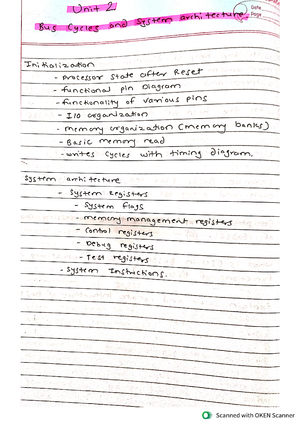 Unit 2
Date
Page
Bus Cycles and System architecture
Initialization
- processor state after Reset
- functional pin Diagram
- functionality of various pins
- I/O organization
- memory organization (memory banks)
- Basic memory read
- writes cycles with timing diagram.
System architecture
- System Registers
- System flags
- memory management registers
- Control registers
- Debug registers
- Test registers
- System Instructions.
Scanned with OKEN Scanner